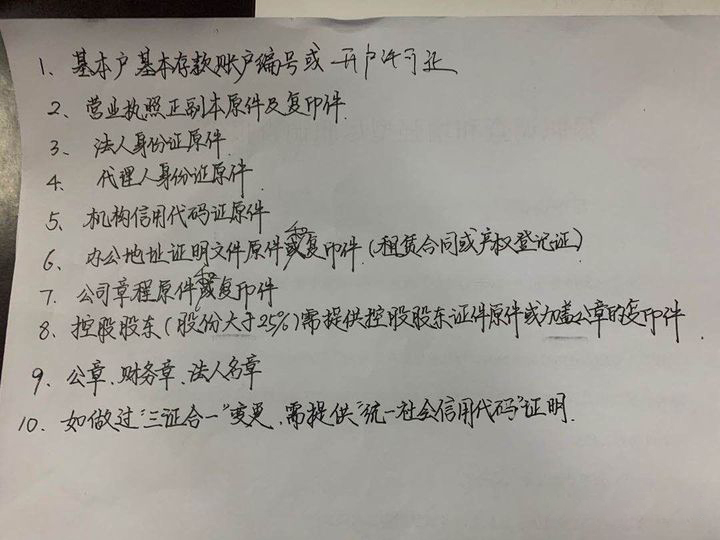 1、基本户基本存款账户编号或开户许可证
2、营业执照正副本原件及复印件.
3、法人身份证原件.
4、代理人身份证原件.
5、机构信用代码证原件
6、办公地址证明文件原件和复印件(租赁合同或产权登记证)
7、公司章程原件和复印件
8、控股股东(股份大于25%)需提供控股股东证件原件或加盖公章的复印件.
9、公章、财务章、法人名章
10、如做过“三证合一”变更,需提供“统一社会信用代码”证明.